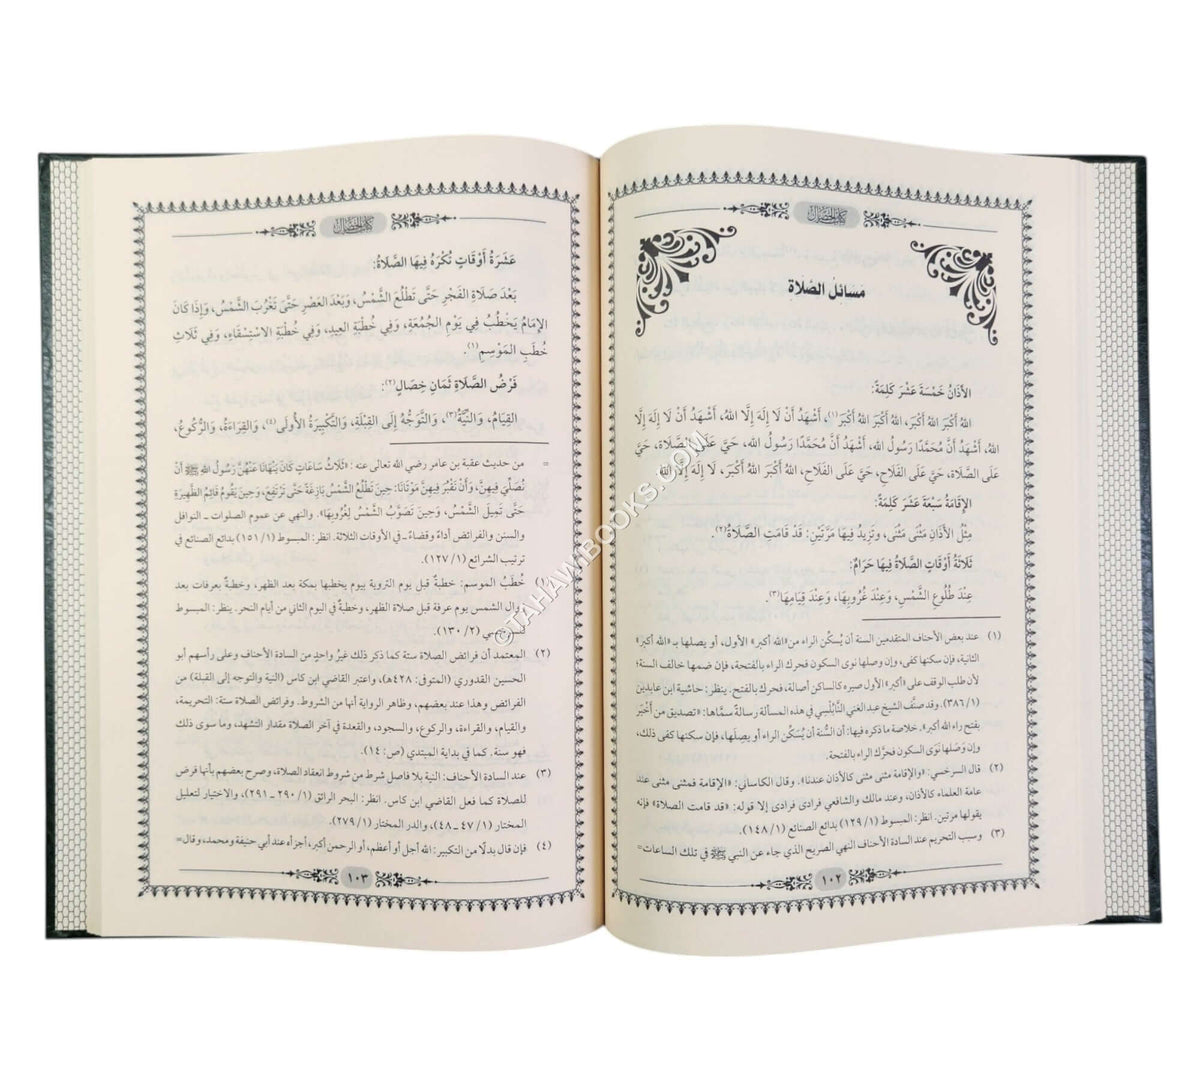 كتاب الخصال
مسائل الصلاة
الأَذَانُ خَمْسَةَ عَشَرَ كَلِمَةً:
اللهُ أَكْبَرُ اللهُ أَكْبَرُ، اللهُ أَكْبَرَ اللهُ أَكْبَرُ(١)، أَشْهَدُ أَنْ لَا إِلَهَ إِلَّا اللهُ، أَشْهَدُ أَنْ لَا إِلَهَ إِلَّا
اللهُ، أَشْهَدُ أَنَّ مُحَمَّدًا رَسُولُ الله، أَشْهَدُ أَنَّ مُحَمَّدًا رَسُولُ الله، حَيَّ عَلَى الصَّلَاة، حَيَّ
عَلَى الصَّلَاة، حَيَّ عَلَى الفَلَاحِ، حَيَّ عَلَى الفَلَاحِ، اللهُ أَكْبَرُ اللهُ أَكْبَرُ، لَا إِلَهَ إِلَّا اللهُ.
الإِقَامَةُ سَبْعَةَ عَشَرَ كَلِمَةً:
مِثْلُ الأَذَانِ مَثْنَى مَثْنَى، وَتَزِيدُ فِيهَا مَرَّتَيْنِ: قَدْ قَامَتِ الصَّلَاةُ(٢).
ثَلَاثَةُ أَوْقَاتٍ الصَّلَاةُ فِيهَا حَرَامٌ:
عِنْدَ طُلُوعِ الشَّمْسِ، وَعِنْدَ غُرُوبِهَا، وَعِنْدَ قِيَامِهَا(٣).
(١) عند بعض الأحناف المتقدمين السنة أن يُسكّن الراء من «الله أكبر» الأول، أو يصلها بـ «الله أكبر»
الثانية، فإن سكنها كفى، وإن وصلها نوى السكون فحرك الراء بالفتحة، فإن ضمها خالف السنة؛
لأن طلب الوقف على «أكبر» الأول صيره كالساكن أصالة، فحرك بالفتح. ينظر: حاشية ابن عابدين
(١/ ٣٨٦). وقد صنَّف الشيخ عبد الغني النَّابُلُسِي في هذه المسألة رسالةً سمَّاها: «تصديق من أخْبَر
بفتح راء الله أكبر». خلاصة ما ذكره فيها: أن السُّنة أن يُسَكّن الراء أو يصِلها، فإن سكنها كفى ذلك،
وإن وَصَلها نَوَى السكون فحرَّك الراء بالفتحة.
(٢) قال السرخسي: «والإقامة مثنى مثنى كالأذان عندنا». وقال الكاساني: «الإقامة فمثنى مثنى عند
عامة العلماء كالأذان، وعند مالك والشافعي فرادى فرادى إلا قوله: «قد قامت الصلاة» فإنه
يقولها مرتين. انظر: المبسوط (١/ ١٢٩) بدائع الصنائع (١/ ١٤٨).
(٣) وسبب التحريم عند السادة الأحناف النهي الصريح الذي جاء عن النبي ﷺ في تلك الساعات=
١٠٢
كتاب الخصال
عَشَرَةُ أَوْقَاتٍ تُكْرَهُ فِيهَا الصَّلَاةُ:
بَعْدَ صَلَاةِ الفَجْرِ حَتَّى تَطْلُعَ الشَّمْسُ، وَبَعْدَ العَصْرِ حَتَّى تَغْرُبَ الشَّمْسُ، وَإِذَا كَانَ
الإِمَامُ يَخْطُبُ فِي يَوْمِ الجُمُعَةِ، وَفِي خُطْبَةِ العِيدِ، وَفِي خُطْبَةِ الاسْتِسْقَاءِ، وَفِي ثَلَاثِ
خُطَبِ المَوْسِمِ(١).
فَرْضُ الصَّلَاةِ ثَمَانِ خِصَالٍ(٢):
القِيَامُ، وَالنِّيَّةُ(٣)، وَالتَّوَجُّهُ إِلَى القِبْلَةِ، وَالتَّكْبِيرَةُ الأُولَى(٤)، وَالقِرَاءَةُ، وَالرُّكُوعُ،
= من حديث عقبة بن عامر رضي الله تعالى عنه: «ثَلَاثُ سَاعَاتٍ كَانَ يَنْهَانَا عَنْهُنَّ رَسُولُ الله ﷺ أَنْ
نُصَلِّيَ فِيهِنَّ، وَأَنْ نَقْبُرَ فِيهِنَّ مَوْتَانَا: حِينَ تَطْلُعُ الشَّمْسُ بَازِغَةً حَتَّى تَرْتَفِعَ، وَحِينَ يَقُومُ قَائِمُ الظَّهِيرَةِ
حَتَّى تَمِيلَ الشَّمْسُ، وَحِينَ تَضَوَّبُ الشَّمْسُ لِغُرُوبِهَا». والنهي عن عموم الصلوات ـ النوافل
والسنن والفرائض أداءً وقضاءً ـ في الأوقات الثلاثة. انظر: المبسوط (١/ ١٥١) بدائع الصنائع في
ترتيب الشرائع (١/ ١٢٧).
(١) خُطَبُ الموسم: خطبةٌ قبل يوم التروية بيوم يخطبها بمكة بعد الظهر، وخطبة بعرفات بعد
زوال الشمس يوم عرفة قبل صلاة الظهر، وخطبةٌ في اليوم الثاني من أيام النحر. ينظر: المبسوط
للسرخسي (٢/ ١٣٠).
(٢) المعتمد أن فرائض الصلاة ستة كما ذكر ذلك غيرُ واحدٍ من السادة الأحناف وعلى رأسهم أبو
الحسين القدوري (المتوفى: ٤٢٨هـ)، واعتبر القاضي ابن كاس (النية والتوجه إلى القبلة) من
الفرائض وهذا عند بعضهم، وظاهر الرواية أنها من الشروط. وفرائض الصلاة ستة: التحريمة،
والقيام، والقراءة، والركوع، والسجود، والقعدة في آخر الصلاة مقدار التشهد، وما سوى ذلك
فهو سنة. كما في بداية المبتدي (ص: ١٤).
(٣) عند السادة الأحناف: النية بلا فاصل شرط من شروط انعقاد الصلاة، وصرح بعضهم بأنها فرض
للصلاة كما فعل القاضي ابن كاس. انظر: البحر الرائق (١/ ٢٩٠ ـ ٢٩١)، والاختيار لتعليل
المختار (١/ ٤٧ ـ ٤٨)، والدر المختار (١/ ٢٧٩).
(٤) فإن قال بدلًا من التكبير: الله أجل أو أعظم، أو الرحمن أكبر، أجزأه عند أبي حنيفة ومحمد، وقال=
١٠٣
©TAHAWIBOOKS.COM